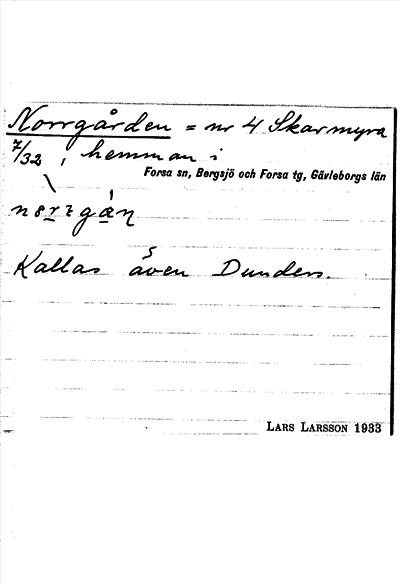 Norrgården = nr 4 Skarmyra
7/32, hemman i
Forsa sn, Bergsjö och Forsa tg, Gävleborgs län
Kallas även Dunders.
LARS LARSSON 1933